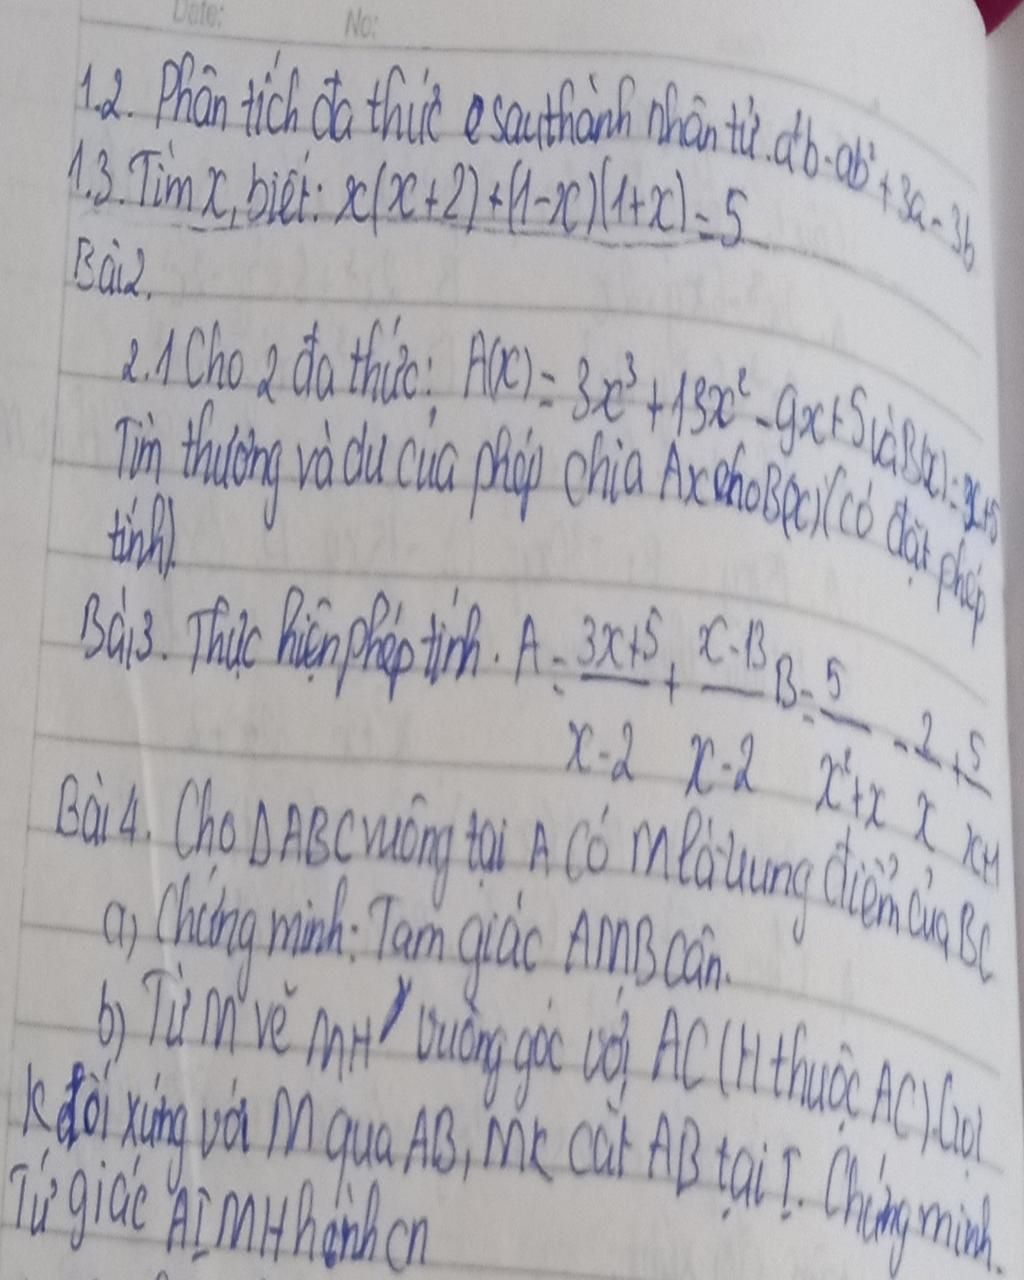 Date: No:
1.2. Phân tích đa thức sau thành nhân tử. a²b - ab² + 3a - 3b
1.3. Tìm x, biết: x(x+2)+(1-x)(1+x)=5
Bài 2.
2.1 Cho 2 đa thức: A(x) = 3x³ + 13x² - 9x + 5 và B(x) = x+5
Tìm thương và dư của phép chia Ax cho B(x) (có đặt phép
tính)
Bài 3. Thực hiện phép tính. A = 3x+5 + x-13 B = 5 - 2 + 5
x-2 x-2 x²+x x x+1
Bài 4. Cho ΔABC vuông tại A có M là trung điểm của BC
a) Chứng minh: Tam giác AMB cân.
b) Từ M vẽ MH vuông góc với AC (H thuộc AC). Gọi
K đối xứng với M qua AB, MK cắt AB tại I. Chứng minh.
Tứ giác AIMH hình cn